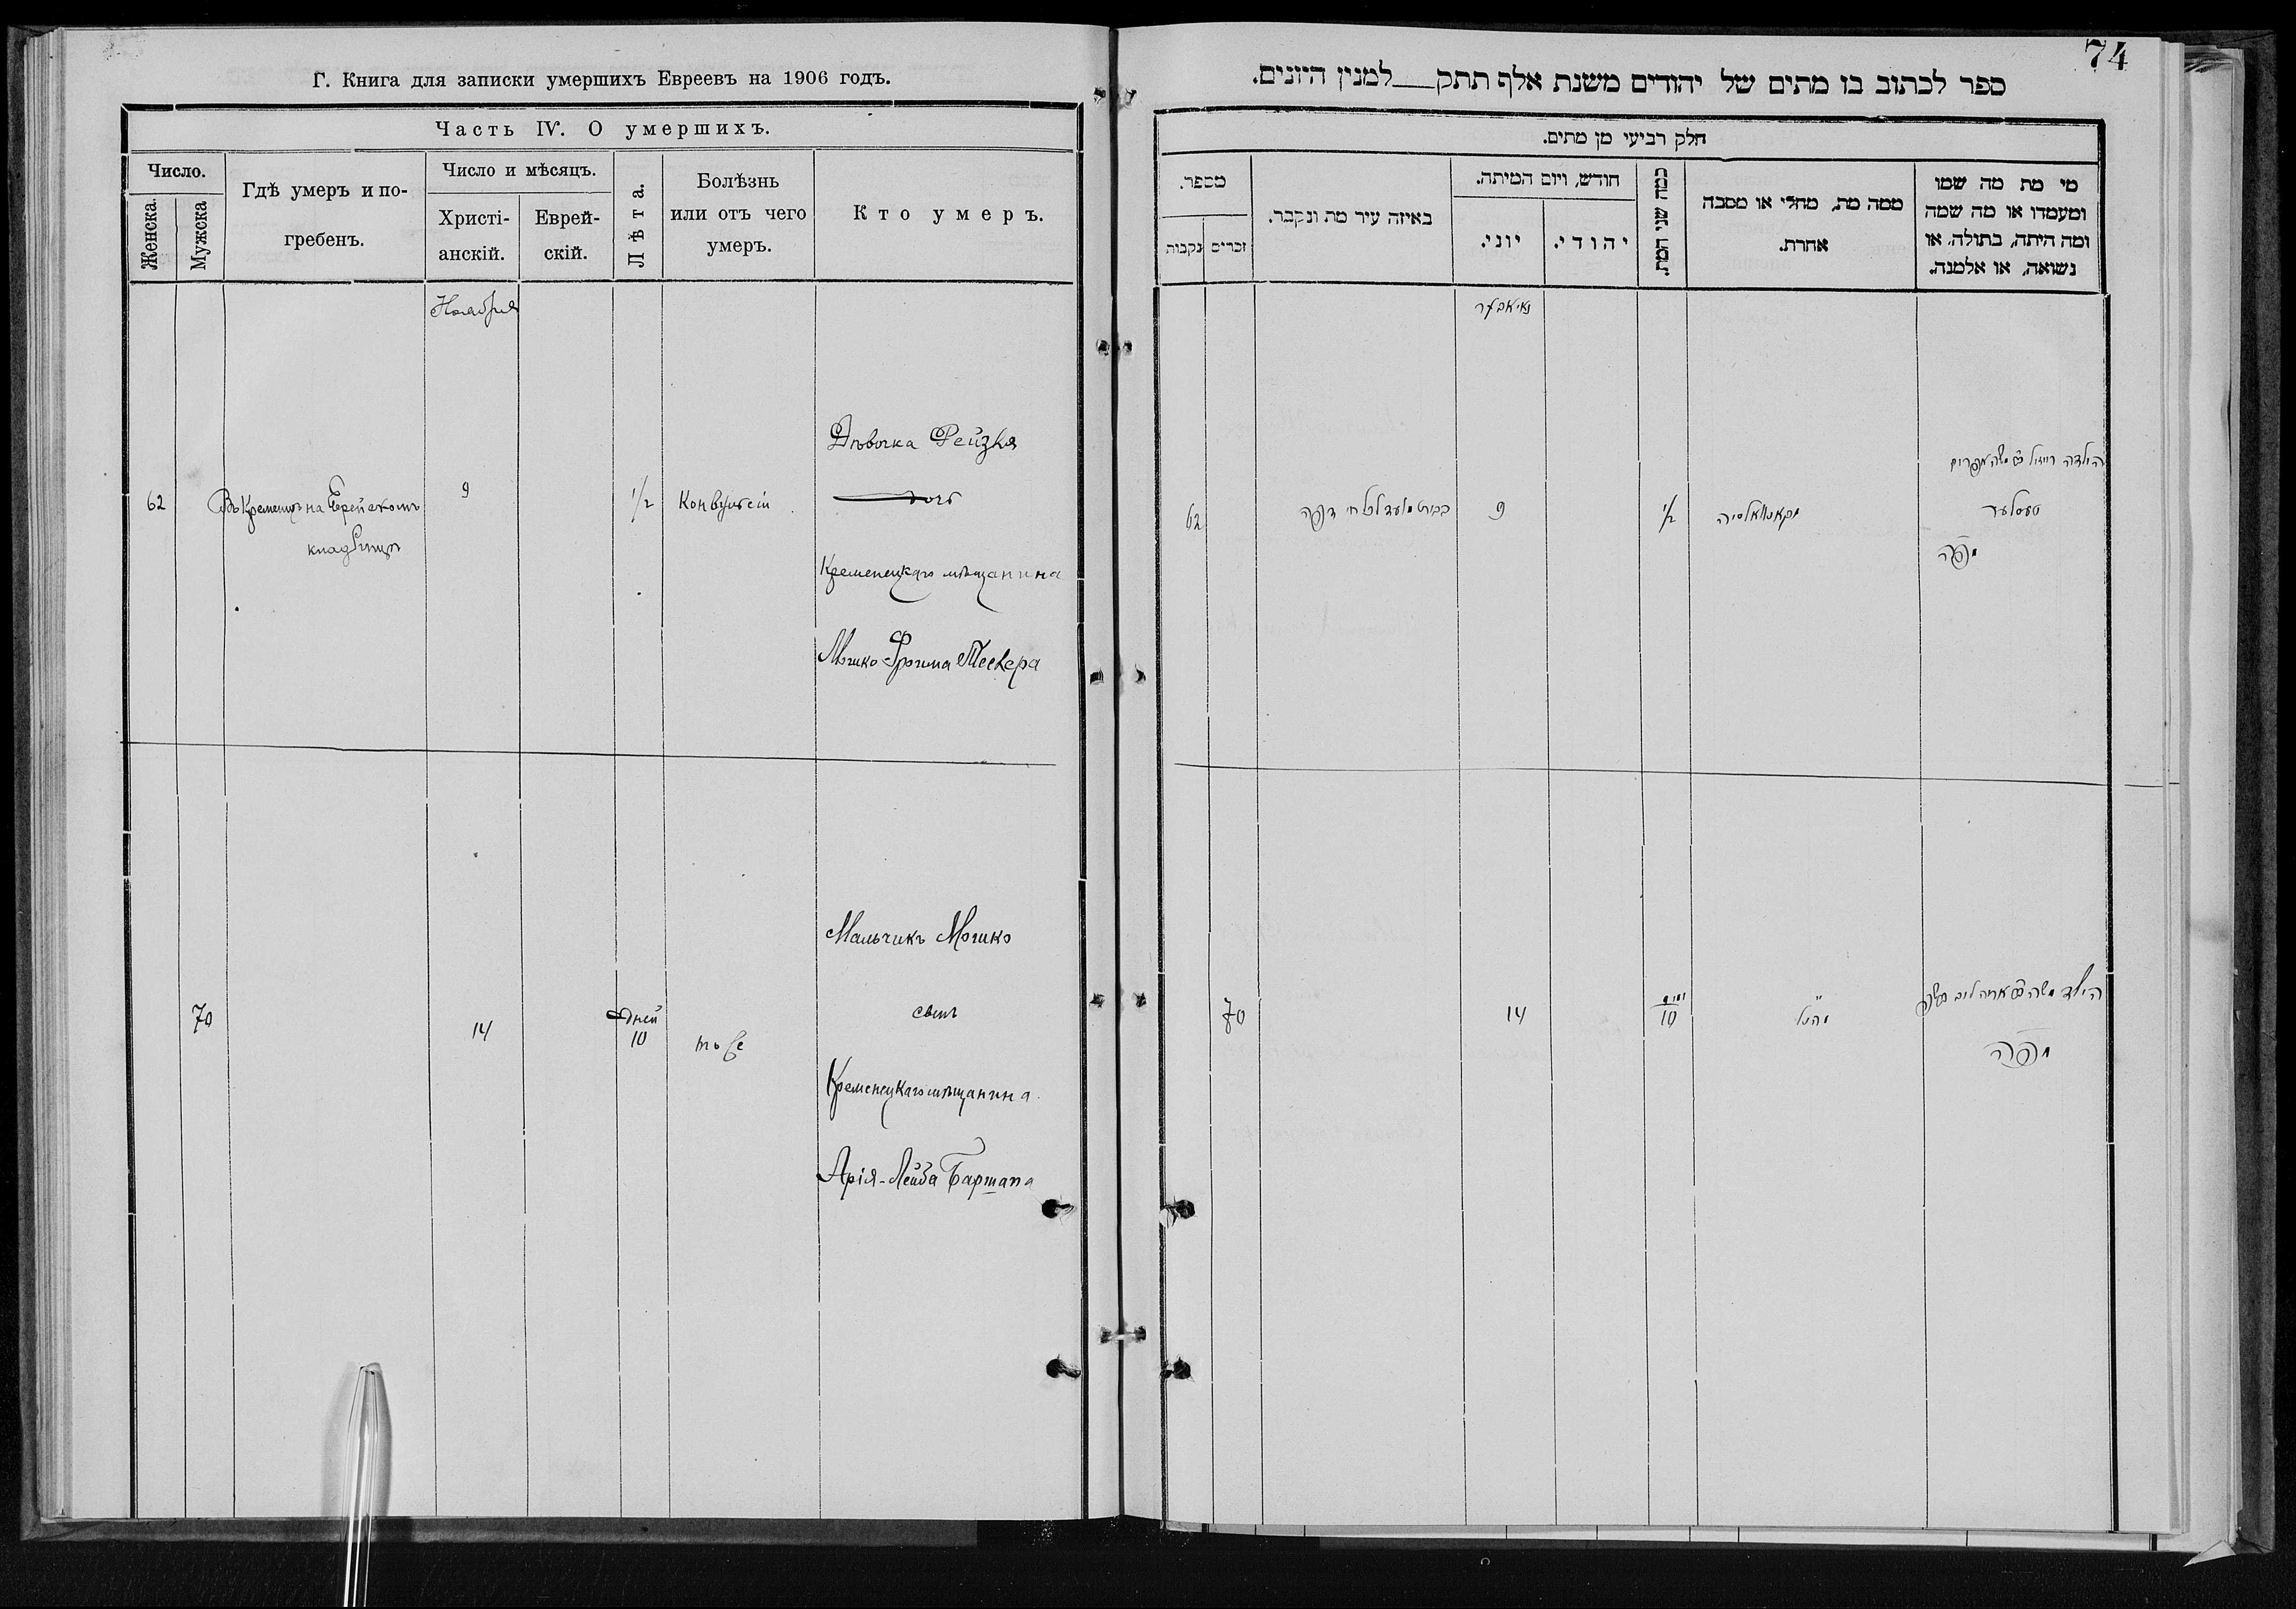 Г. Книга для записки умершихъ Евреевъ на 1906 годъ.
Часть IV. О умершихъ.
Число.
Женска.
Мужска
Гдѣ умеръ и по-
гребенъ.
Число и мѣсяцъ.
Христі-
анскій.
Еврей-
скій.
Лѣта.
Болѣзнь
или отъ чего
умеръ.
Кто умеръ.
Ноября
62
Въ Кременцѣ на Еврейскомъ
кладбищѣ
9
1/2
Конвульсіи
Дѣвочка Рейзля
дочь
Кременецкаго мѣщанина
Мошко-Фроима Теслера
70
14
дней
10
тоже
Мальчикъ Мошко
сынъ
Кременецкаго мѣщанина
Арія-Лейба Бармапа
74
ספר לכתוב בו מתים של יהודים משנת אלף תתק למנין היונים.
חלק רביעי מן מתים.
מי מת מה שמו
ומעמדו או מה שמה
ומה היתה, בתולה, או
נשואה, או אלמנה.
ממה מת, מחלי או מסבה
אחרת.
כמה שני המת.
חודש, ויום המיתה.
יהודי.
יוני.
באיזה עיר מת ונקבר.
מספר.
זכרים
נקבות
נאיאבער
הילדה רייזל משה אפרים
טעסלער
1/2
9
62
הילד משה אריה ליב
ימים
10
14
70